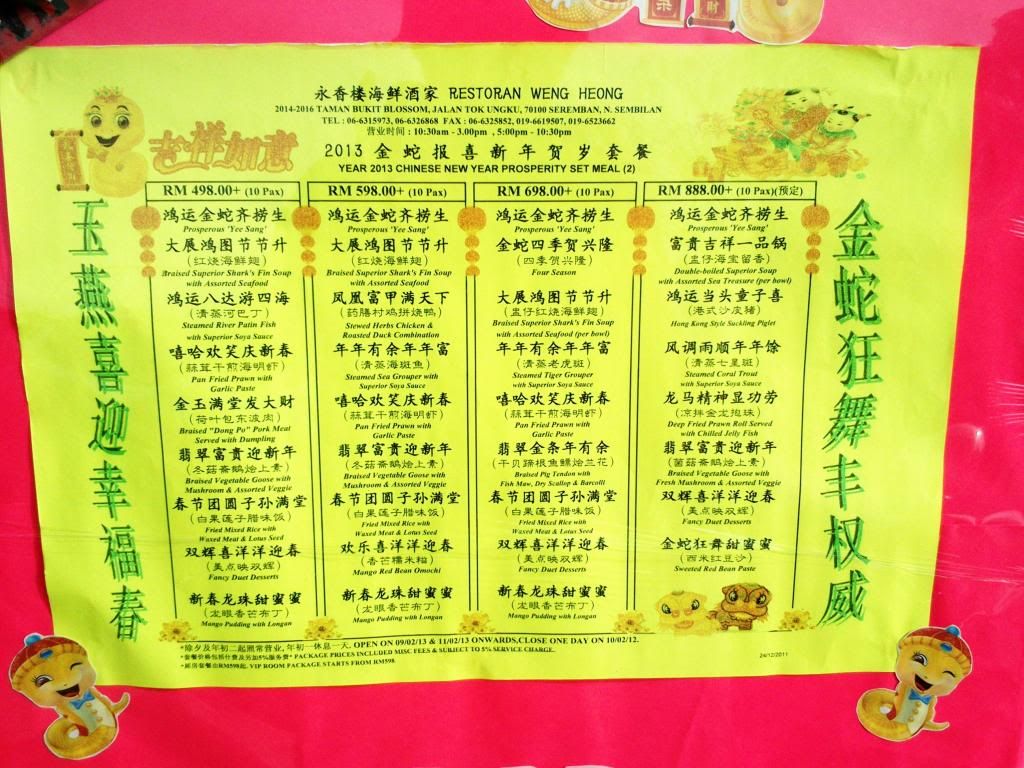 永香楼海鲜酒家 RESTORAN WENG HEONG
2014-2016 TAMAN BUKIT BLOSSOM, JALAN TOK UNGKU, 70100 SEREMBAN, N. SEMBILAN
TEL : 06-6315973, 06-6326868 FAX : 06-6325852, 019-6619507, 019-6523662
营业时间 : 10:30am - 3.00pm , 5:00pm - 10:30pm
吉祥如意
2013 金蛇报喜新年贺岁套餐
YEAR 2013 CHINESE NEW YEAR PROSPERITY SET MEAL (2)
玉燕喜迎幸福春
RM 498.00+ (10 Pax)
鸿运金蛇齐捞生
Prosperous 'Yee Sang'
大展鸿图节节升
(红烧海鲜翅)
Braised Superior Shark's Fin Soup
with Assorted Seafood
鸿运八达游四海
(清蒸河巴丁)
Steamed River Patin Fish
with Superior Soya Sauce
嘻哈欢笑庆新春
(蒜茸干煎海明虾)
Pan Fried Prawn with
Garlic Paste
金玉满堂发大财
(荷叶包东波肉)
Braised "Dong Po" Pork Meat
Served with Dumpling
翡翠富贵迎新年
(冬菇斋鹅烩上素)
Braised Vegetable Goose with
Mushroom & Assorted Veggie
春节团圆子孙满堂
(白果莲子腊味饭)
Fried Mixed Rice with
Waxed Meat & Lotus Seed
双辉喜洋洋迎春
(美点映双辉)
Fancy Duet Desserts
新春龙珠甜蜜蜜
(龙眼香芒布丁)
Mango Pudding with Longan
RM 598.00+ (10 Pax)
鸿运金蛇齐捞生
Prosperous 'Yee Sang'
大展鸿图节节升
(红烧海鲜翅)
Braised Superior Shark's Fin Soup
with Assorted Seafood
凤凰富甲满天下
(药膳村鸡拼烧鸭)
Stewed Herbs Chicken &
Roasted Duck Combination
年年有余年年富
(清蒸海斑鱼)
Steamed Sea Grouper with
Superior Soya Sauce
嘻哈欢笑庆新春
(蒜茸干煎海明虾)
Pan Fried Prawn with
Garlic Paste
翡翠富贵迎新年
(冬菇斋鹅烩上素)
Braised Vegetable Goose with
Mushroom & Assorted Veggie
春节团圆子孙满堂
(白果莲子腊味饭)
Fried Mixed Rice with
Waxed Meat & Lotus Seed
欢乐喜洋洋迎春
(香芒糯米糍)
Mango Red Bean Omochi
新春龙珠甜蜜蜜
(龙眼香芒布丁)
Mango Pudding with Longan
RM 698.00+ (10 Pax)
鸿运金蛇齐捞生
Prosperous 'Yee Sang'
金蛇四季贺兴隆
(四季贺兴隆)
Four Season
大展鸿图节节升
(盅仔红烧海鲜翅)
Braised Superior Shark's Fin Soup
with Assorted Seafood (per bowl)
年年有余年年富
(清蒸老虎斑)
Steamed Tiger Grouper
with Superior Soya Sauce
嘻哈欢笑庆新春
(蒜茸干煎海明虾)
Pan Fried Prawn with
Garlic Paste
翡翠金条年有余
(干贝蹄根鱼鳔烩兰花)
Braised Pig Tendon with
Fish Maw, Dry Scallop & Barcolli
春节团圆子孙满堂
(白果莲子腊味饭)
Fried Mixed Rice with
Waxed Meat & Lotus Seed
双辉喜洋洋迎春
(美点映双辉)
Fancy Duet Desserts
新春龙珠甜蜜蜜
(龙眼香芒布丁)
Mango Pudding with Longan
RM 888.00+ (10 Pax)(预定)
鸿运金蛇齐捞生
Prosperous 'Yee Sang'
富贵吉祥一品锅
(盅仔海宝留香)
Double-boiled Superior Soup
with Assorted Sea Treasure (per bowl)
鸿运当头童子喜
(港式沙皮猪)
Hong Kong Style Suckling Piglet
风调雨顺年年馀
(清蒸七星斑)
Steamed Coral Trout
with Superior Soya Sauce
龙马精神显功劳
(凉拌金龙抱珠)
Deep Fried Prawn Roll Served
with Chilled Jelly Fish
翡翠富贵迎新年
(菌菇斋鹅烩上素)
Braised Vegetable Goose with
Fresh Mushroom & Assorted Veggie
双辉喜洋洋迎春
(美点映双辉)
Fancy Duet Desserts
金蛇狂舞甜蜜蜜
(西米红豆沙)
Sweeted Red Bean Paste
金蛇狂舞丰权威
*除夕及年初二起照常营业, 年初一休息一天. OPEN ON 09/02/13 & 11/02/13 ONWARDS,CLOSE ONE DAY ON 10/02/12.
*套餐价格包括什费及另加5%服务费* PACKAGE PRICES INCLUDED MISC FEES & SUBJECT TO 5% SERVICE CHARGE.
*厢房套餐由RM598起. VIP ROOM PACKAGE STARTS FROM RM598.
24/12/2011